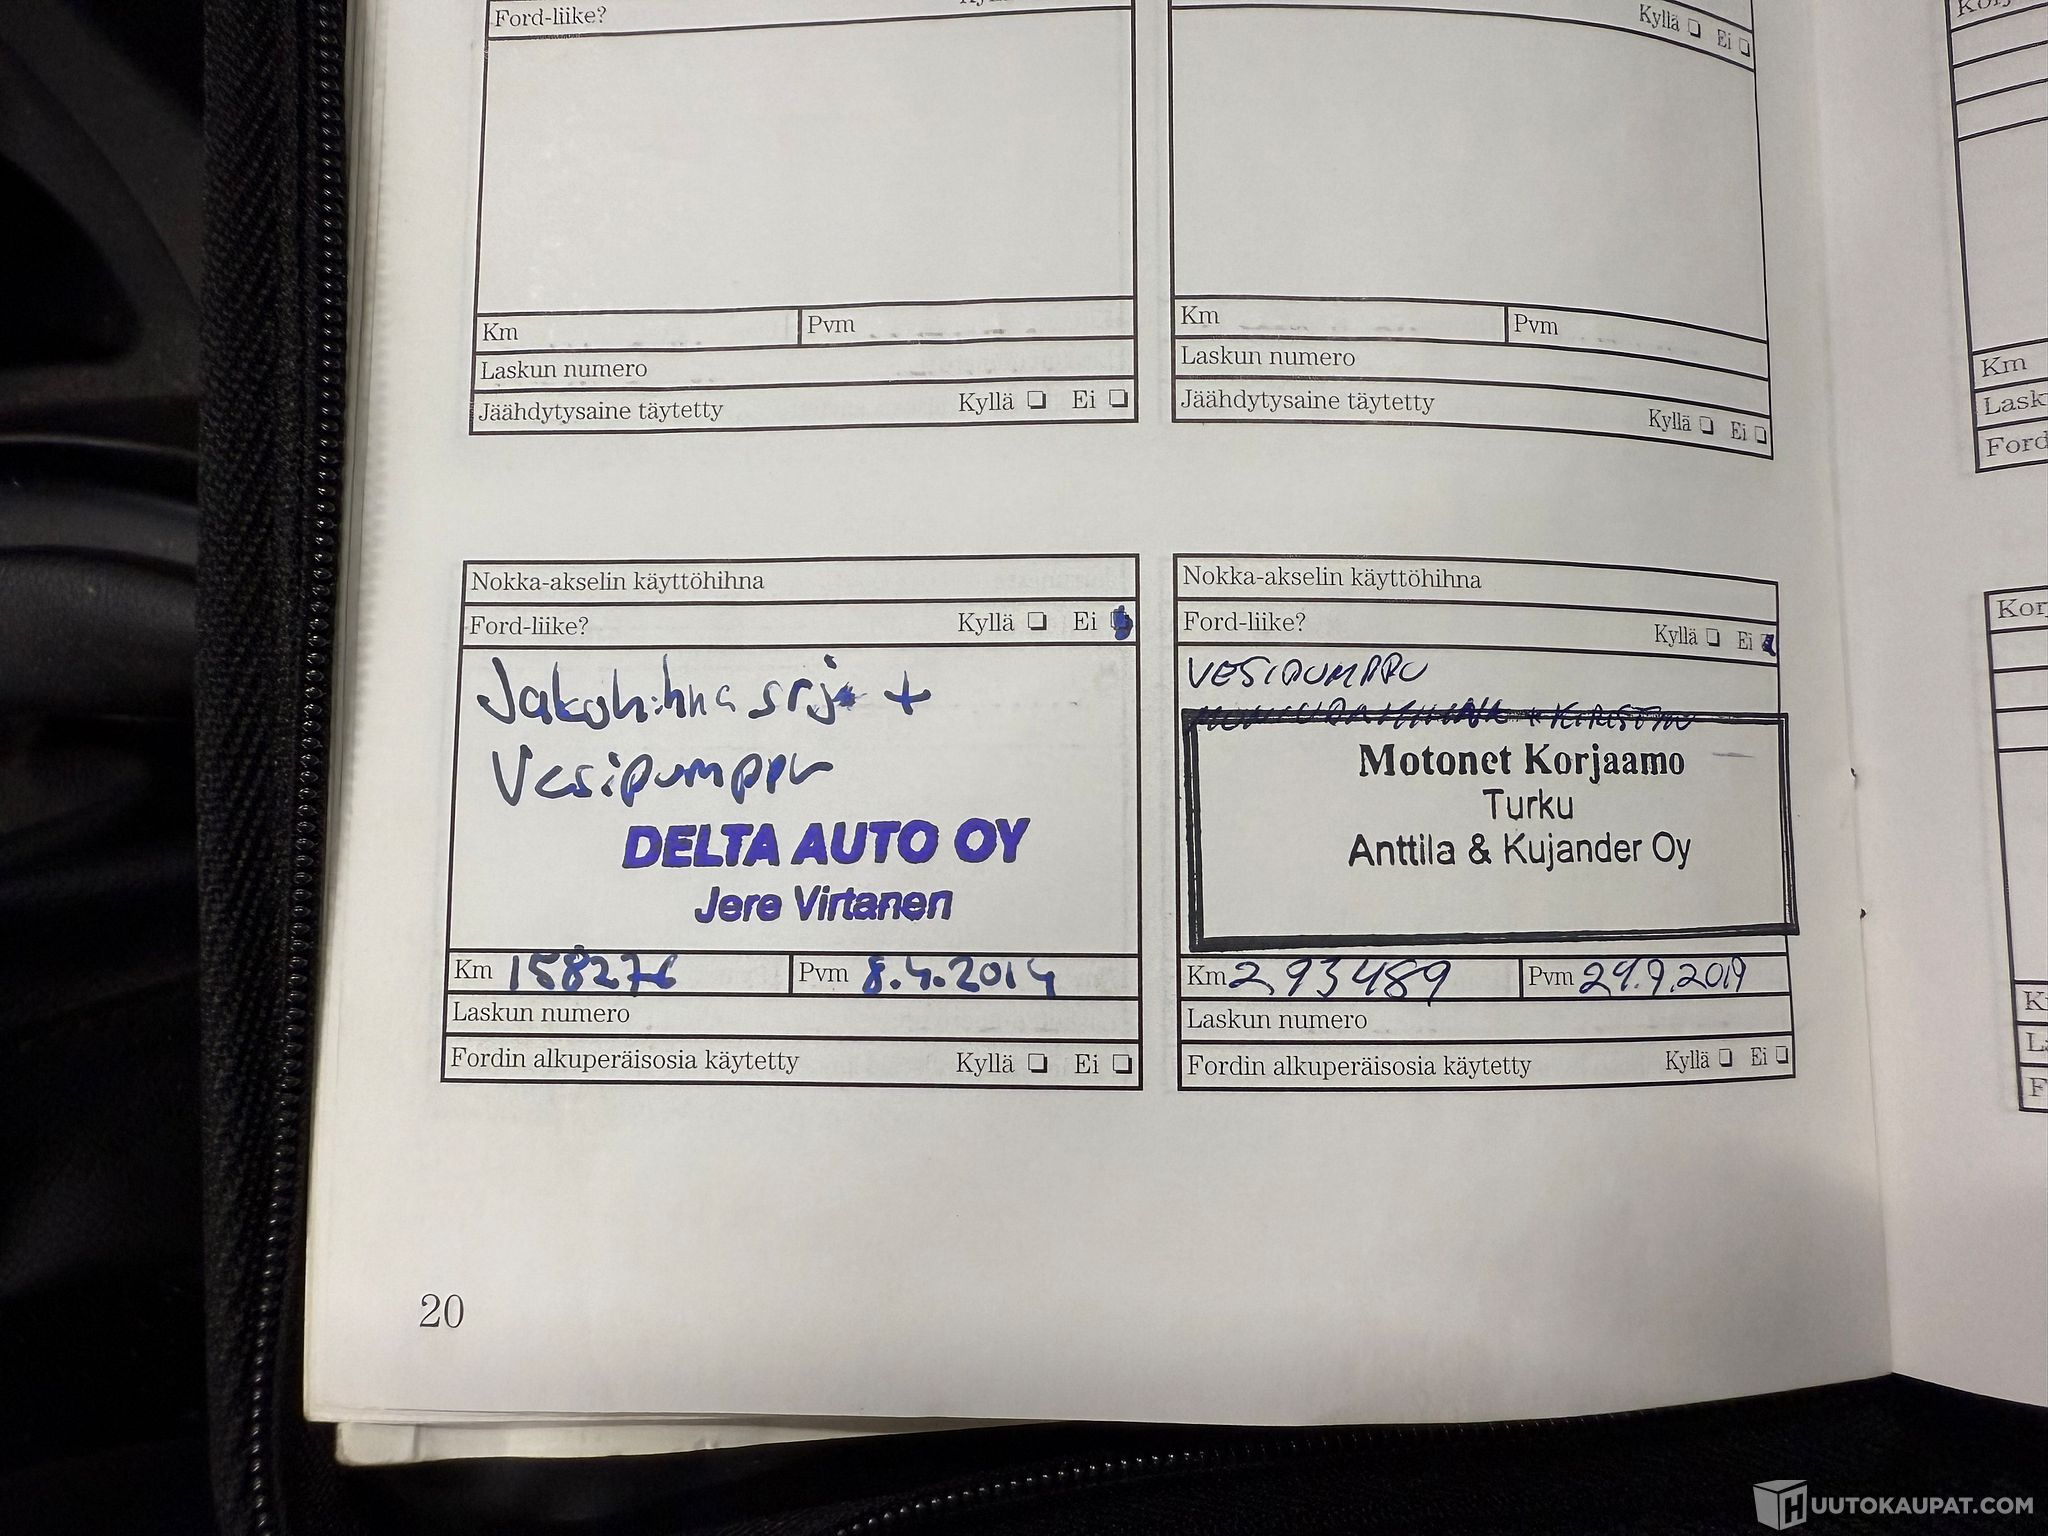 Ford-liike?
Kyllä Ei
Km Pvm
Laskun numero
Jäähdytysaine täytetty Kyllä Ei
Km Pvm
Laskun numero
Jäähdytysaine täytetty Kyllä Ei
Nokka-akselin käyttöhihna
Ford-liike? Kyllä Ei
Jakohihna srj +
Vesipumppu
DELTA AUTO OY
Jere Virtanen
Km 158276 Pvm 8.4.2014
Laskun numero
Fordin alkuperäisosia käytetty Kyllä Ei
Nokka-akselin käyttöhihna
Ford-liike? Kyllä Ei
VESIPUMPPU
Motonet Korjaamo
Turku
Anttila & Kujander Oy
Km 293489 Pvm 24.9.2019
Laskun numero
Fordin alkuperäisosia käytetty Kyllä Ei
Km
Lask
Ford
Kor
20
HUUTOKAUPAT.COM